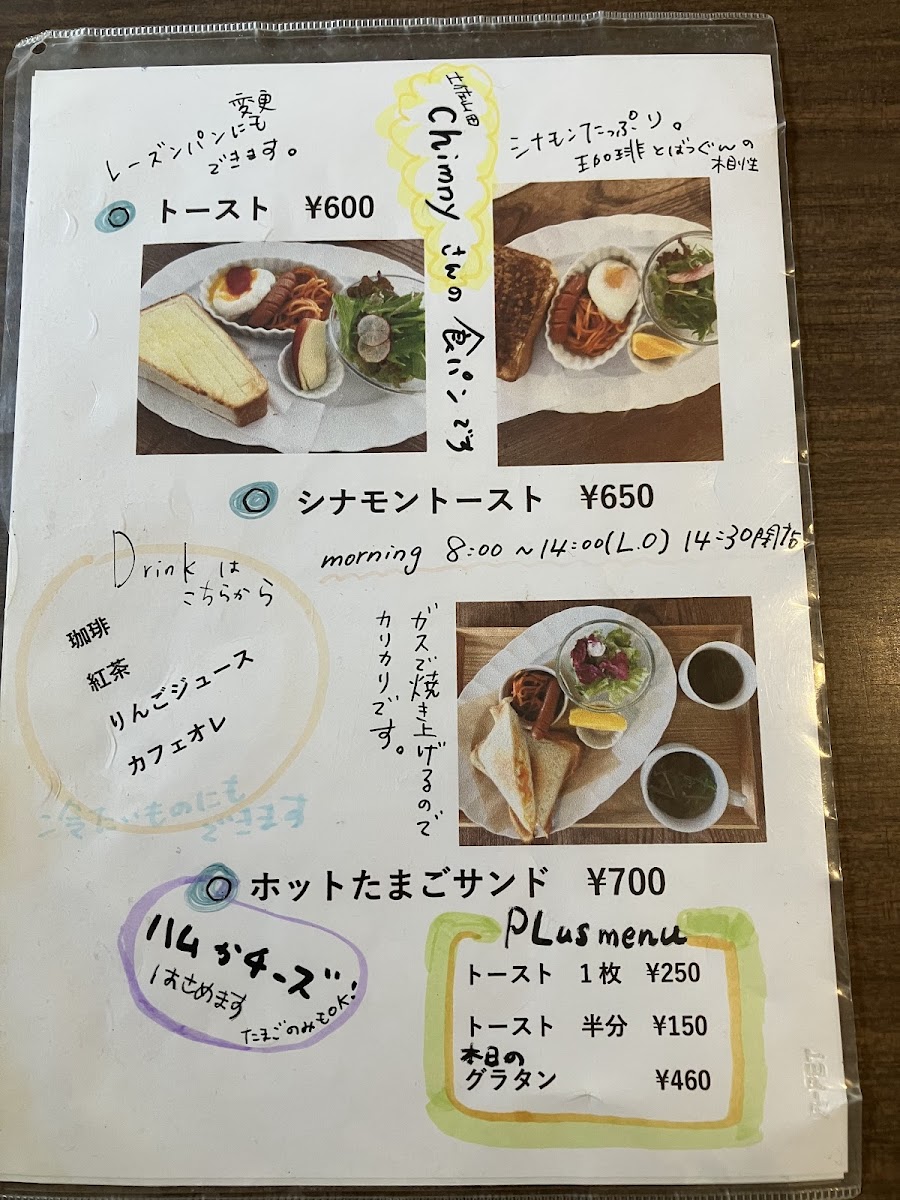 変更
レーズンパンにも
できます。
土佐山田
Chimnyさんの食パンです
シナモンたっぷり。
珈琲とばつぐんの
相性
トースト ¥600
シナモントースト ¥650
morning 8:00〜14:00(L.O) 14:30閉店
Drinkは
こちらから
珈琲
紅茶
りんごジュース
カフェオレ
冷たいものにも
できます
ガスで焼き上げるので
カリカリです。
ホットたまごサンド ¥700
ハムかチーズ
はさめます
たまごのみもOK!
PLus menu
トースト 1枚 ¥250
トースト 半分 ¥150
本日の
グラタン ¥460